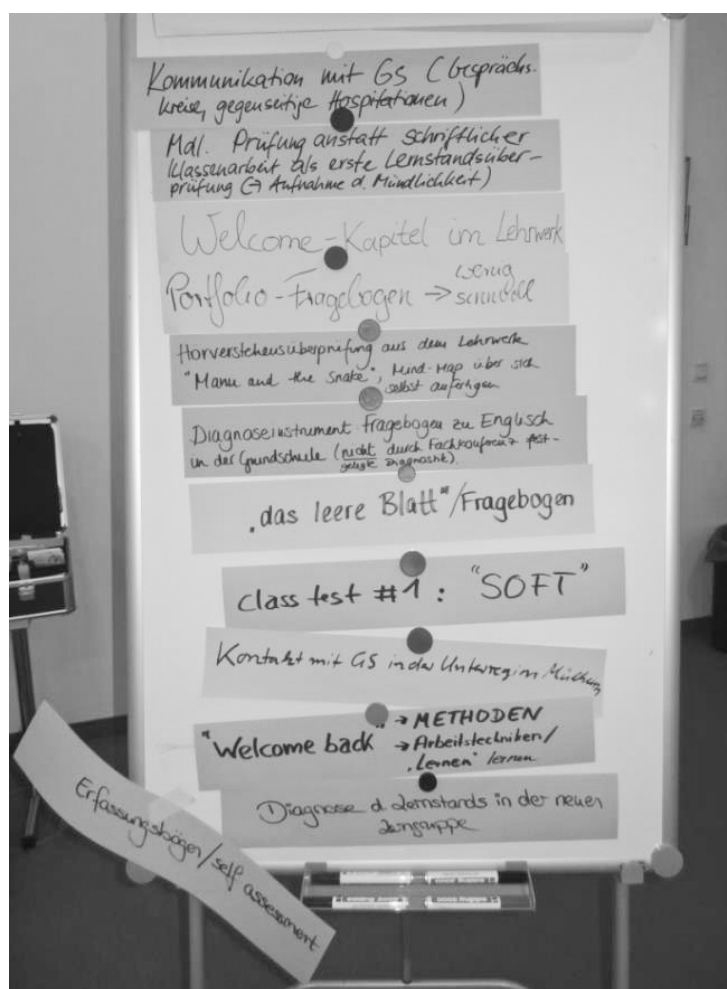 Kommunikation mit GS (Gesprächs-
kreise, gegenseitige Hospitationen)
Mdl. Prüfung anstatt schriftlicher
Klassenarbeit als erste Lernstandsüber-
prüfung (→ Aufnahme d. Mündlichkeit)
Welcome-Kapitel im Lehrwerk
Portfolio-Fragebogen → wenig
sinnvoll
Hörverstehensüberprüfung aus dem Lehrwerk
"Manu and the Snake", Mind-Map über sich
selbst anfertigen
Diagnoseinstrument Fragebogen zu Englisch
in der Grundschule (nicht durch Fachkonferenz fest-
gelegte Diagnostik).
"das leere Blatt"/Fragebogen
Class test #1: "SOFT"
Kontakt mit GS in der Unterregion
"Welcome back" → METHODEN
→ Arbeitstechniken/
"Lernen" lernen
Diagnose d. Lernstands in der neuen
Lerngruppe
Erfassungsbögen/self assessment